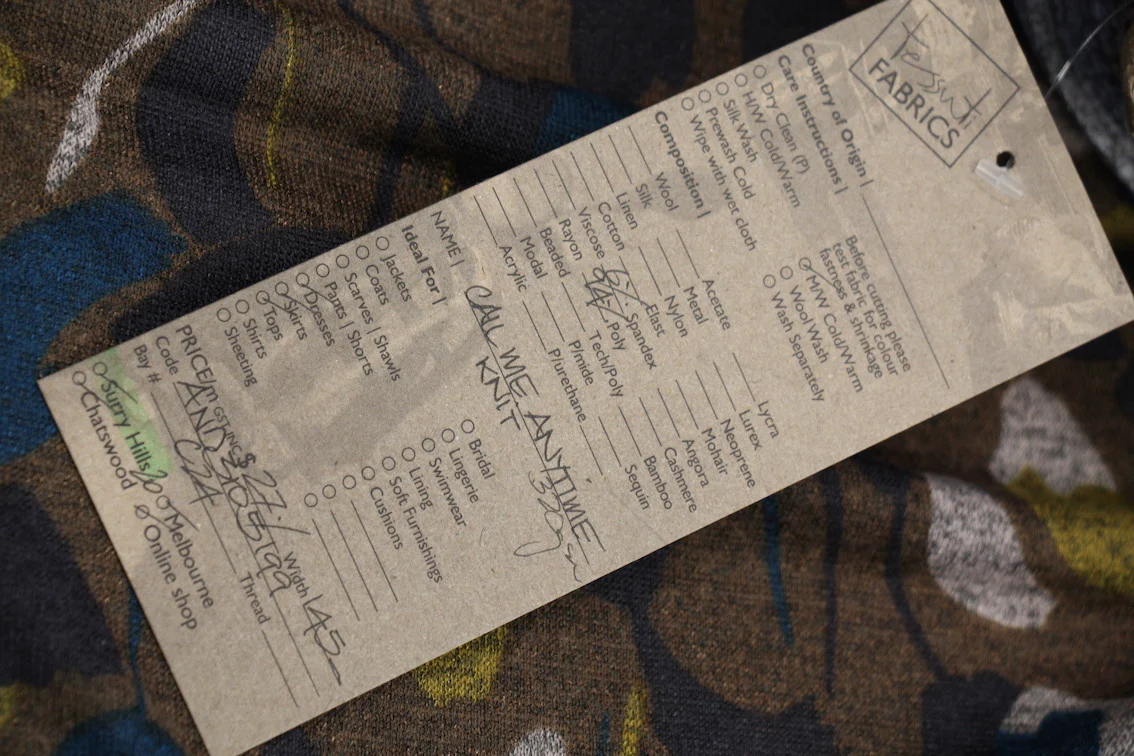 tessuti
FABRICS
Country of Origin |
Care Instructions |
Dry Clean (P)
H/W Cold/Warm
Silk Wash
Prewash Cold
Wipe with wet cloth
Before cutting please
test fabric for colour
fastness & shrinkage
M/W Cold/Warm
Wool Wash
Wash Separately
Composition |
Wool
Silk
Linen
Cotton
Viscose
Rayon
Beaded
Modal
Acrylic
Acetate
Metal
Nylon
Elast
Spandex
Poly
Tech/Poly
P/mide
P/urethane
Lycra
Lurex
Neoprene
Mohair
Angora
Cashmere
Bamboo
Sequin
NAME | CALL ME ANYTIME
KNIT
Ideal For |
Jackets
Coats
Scarves | Shawls
Pants | Shorts
Dresses
Skirts
Tops
Shirts
Sheeting
Bridal
Lingerie
Swimwear
Lining
Soft Furnishings
Cushions
PRICE/m GST INC $ 27/ Width | 145
Code
Bay # Thread
Surry Hills Melbourne
Chatswood Online shop